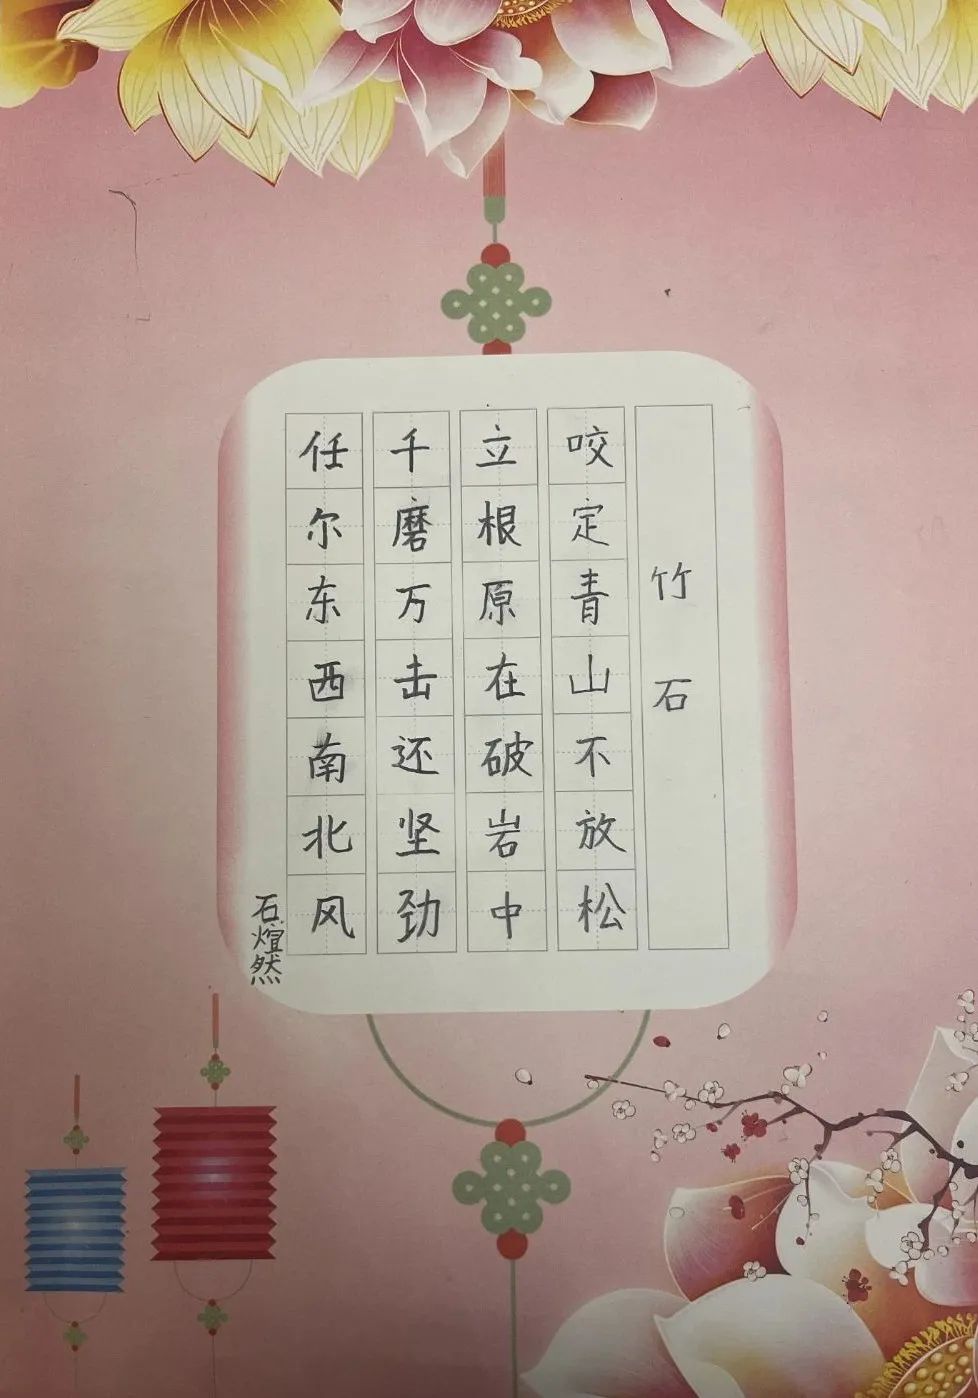 竹石
咬定青山不放松
立根原在破岩中
千磨万击还坚劲
任尔东西南北风
石煊然